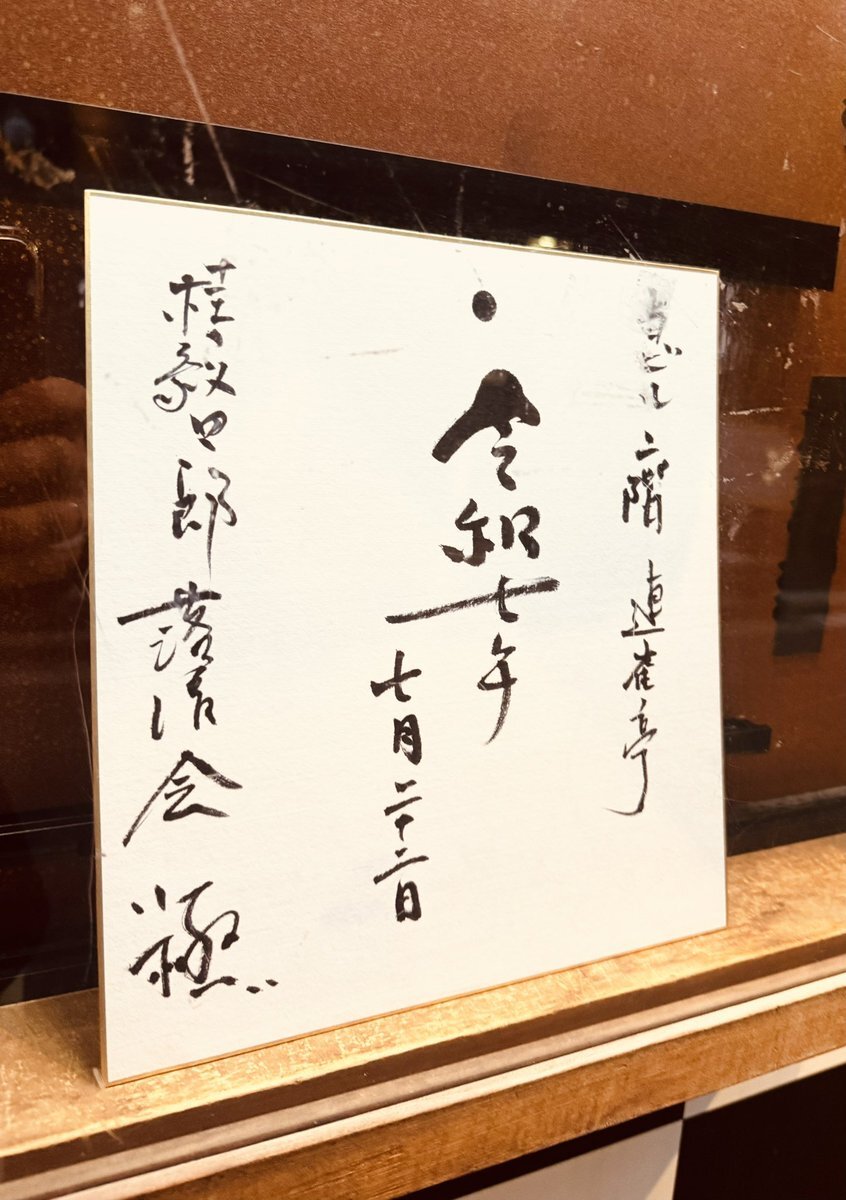 ビル 二階 連雀亭
● 令和七年
七月二十二日
桂紋四郎 落語会 〝極〟